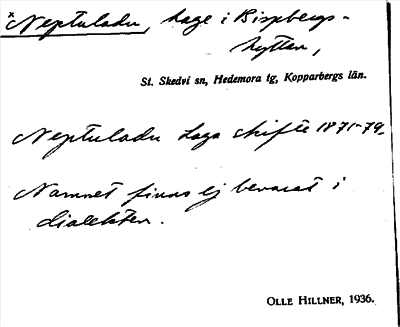 × Neptuladu, hage i Bispbergs-
hyttan,
St. Skedvi sn, Hedemora tg, Kopparbergs län.
Neptuladu Laga skifte 1871-79.
Namnet finns ej bevarat i
dialekten.
OLLE HILLNER, 1936.